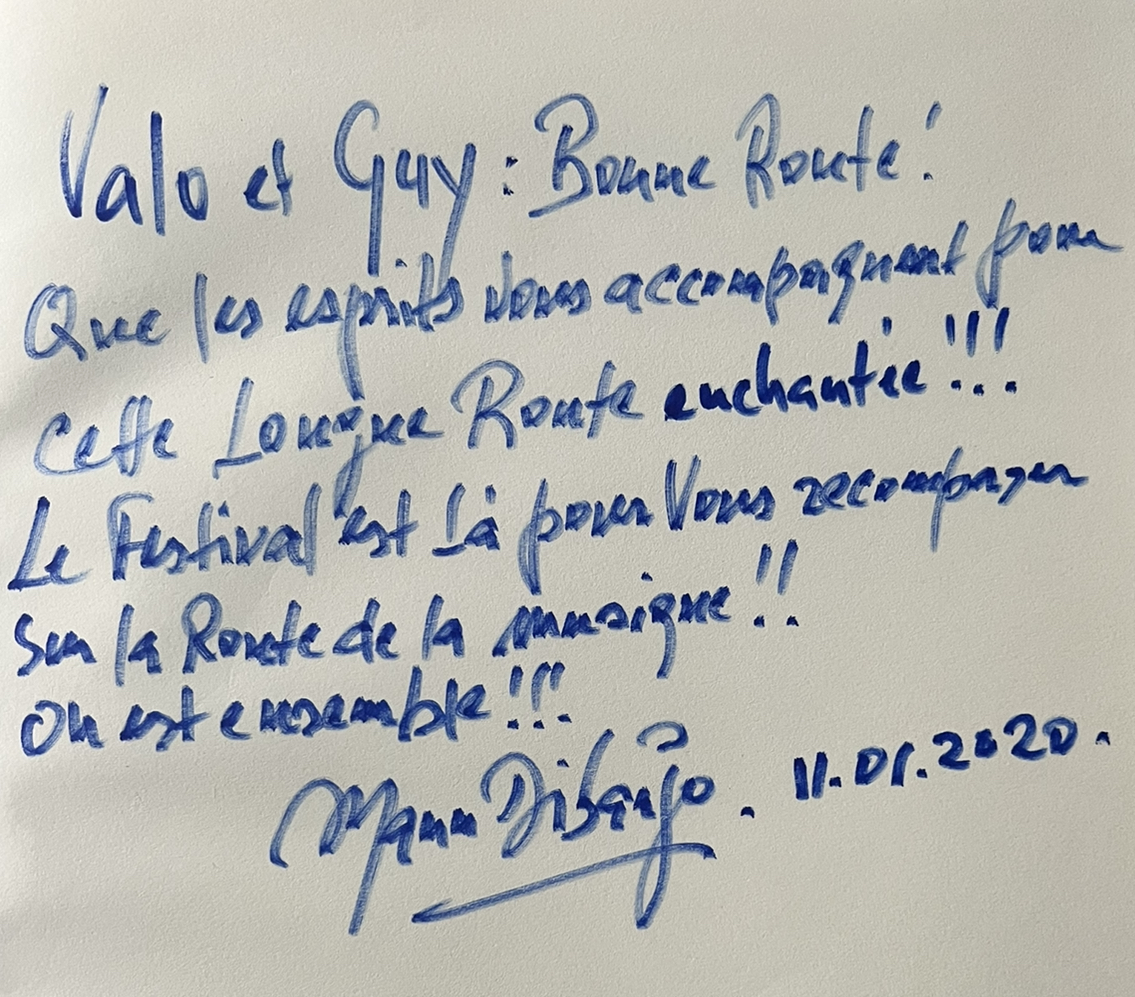 Valo et Guy : Bonne Route !
Que les esprits vous accompagnent pour
cette Longue Route enchantée !!!
Le Festival est Là pour Vous
sur la Route de la musique !!
On est ensemble !!!
Manu Dibango. 11.01.2020.